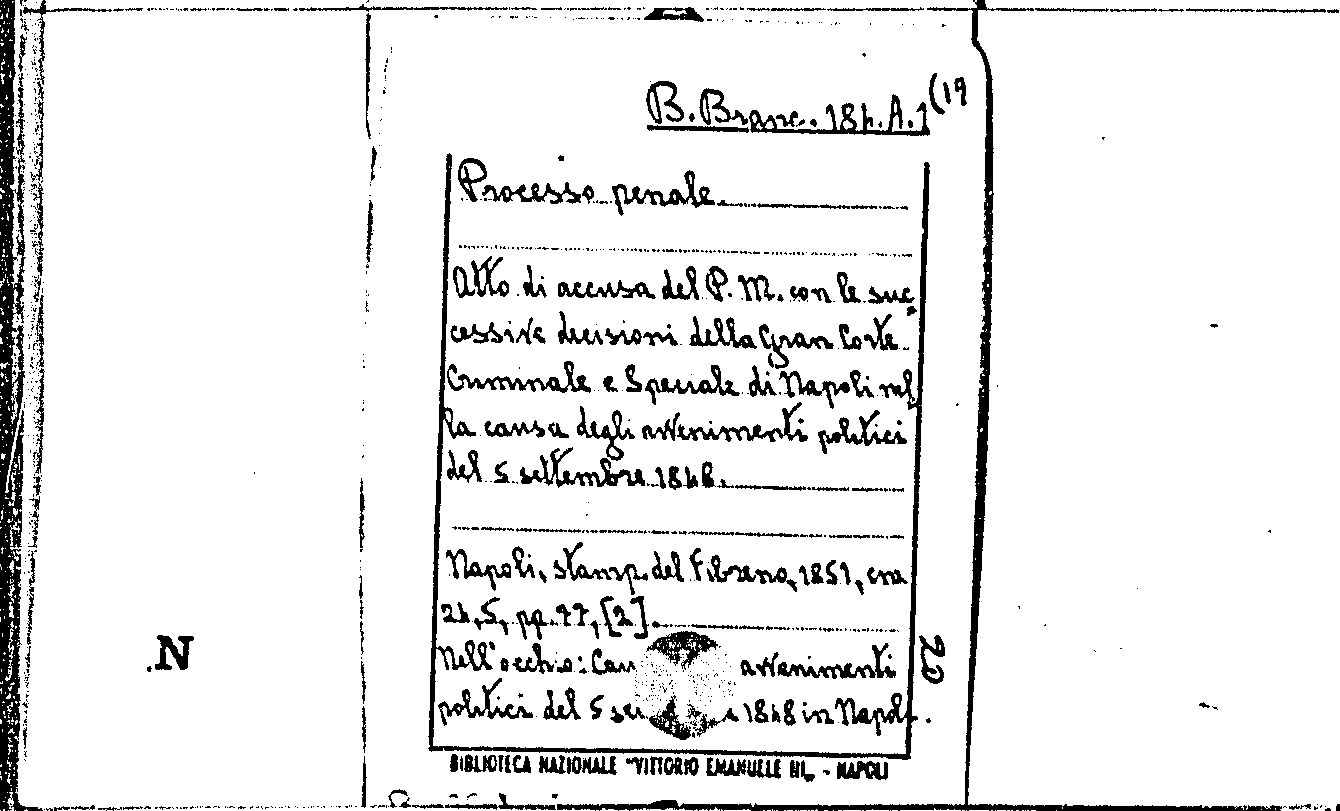 B. Branc. 184. A. 1 (19
Processo penale.
Atto di accusa del P. M. con le suc=
cessive decisioni della Gran Corte
Criminale e Speciale di Napoli nel=
la causa degli avvenimenti politici
del 5 settembre 1848.
Napoli, stamp. del Fibreno, 1851, cm
24,5, pp. 77, [2].
Nell'occhio: Cau avvenimenti
politici del 5 set 1848 in Napoli.
20
BIBLIOTECA NAZIONALE "VITTORIO EMANUELE III„ - NAPOLI
.N